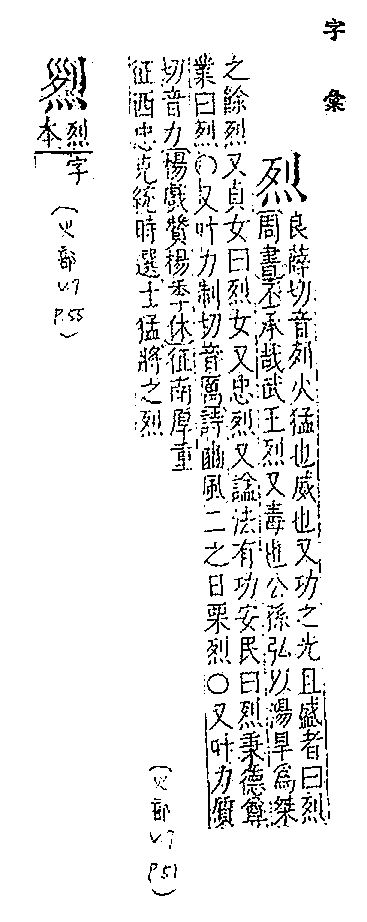 字彙
烈
良薛切音列火猛也威也又功之光且盛者曰烈
周書丕承哉武王烈又毒也公孫弘以湯旱為桀
之餘烈又貞女曰烈女又忠烈又諡法有功安民曰烈秉德尊
業曰烈○又叶力制切音厲詩豳風二之日栗烈○又叶力質
切音力楊戲贊楊季休征南厚重
征西忠克統時選士猛將之烈
(火部 V.7 P.51)
烈字
本
(火部 V.7 P.55)